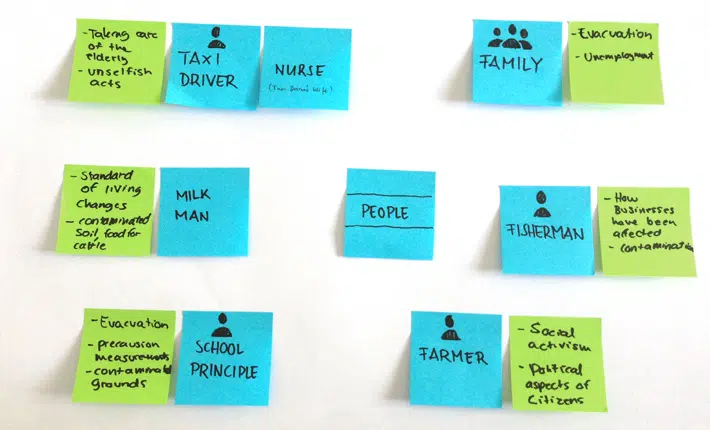 - Taking care
of the
elderly
- unselfish
acts
TAXI
DRIVER
NURSE
FAMILY
- Evacuation
- Unemployment
- Standard
of living
changes
- contaminated
soil, food for
cattle
MILK
MAN
PEOPLE
FISHERMAN
- How
Businesses
have been
affected
- contamination
- Evacuation
- precausion
measurements
- contaminated
grounds
SCHOOL
PRINCIPLE
FARMER
- Social
activism
- Political
aspects of
Citizens